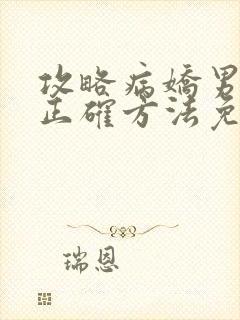 攻略病嬌男
正確方法免
瑞恩